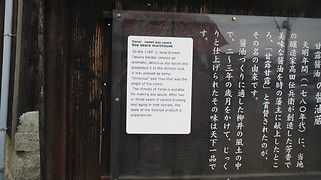 Soy sauce warehouse
In the 1780's, local brewer
Takada Denbei created an
aromatic, delicious soy sauce and
presented it to the domain lord.
It was praised as being
"delicious" and from that was the
origin of the name.
The climate of Yanai is suitable
for making soy sauce. After two
to three years of careful brewing
and aging in that climate, the
taste of the finished product is
unparalleled.
甘露醤油の
天明年間（一七八〇年代）に、当地
の醸造家高田伝兵衛が創造した芳香で
美味な醤油を時の藩主に献上したとこ
ろ、「甘露、甘露」と賞賛されたのが、
その名の由来です。
醤油づくりに適した柳井の風土の中
で、二～三年の歳月をかけて、じっく
りと仕上げられたその味は天下一品で
す。